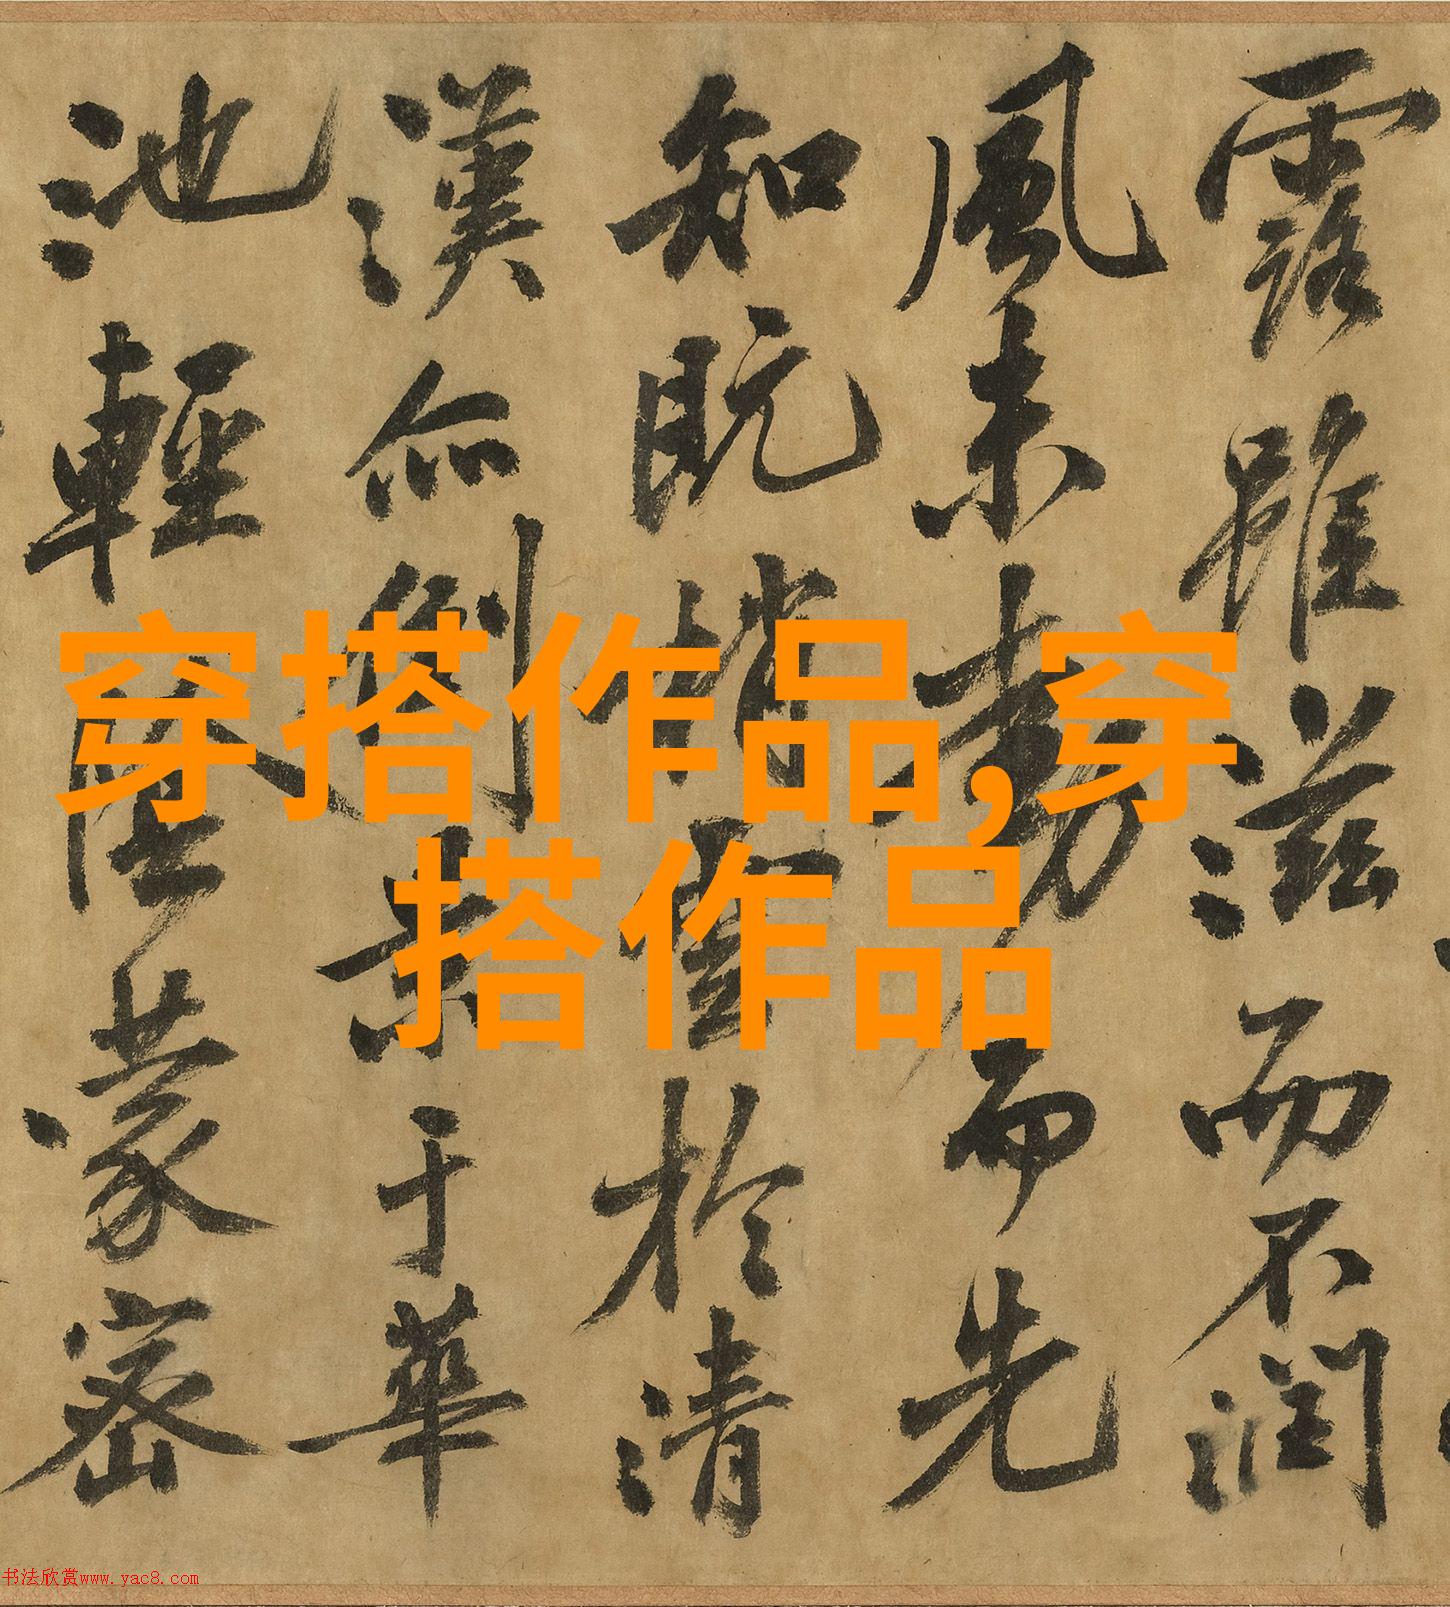 露雖滋而不潤
風未動而先
知既雲於清
漢亦倒景于華
池輕蒙密
穿搭作品,穿
搭作品
书法欣赏www.yac8.com